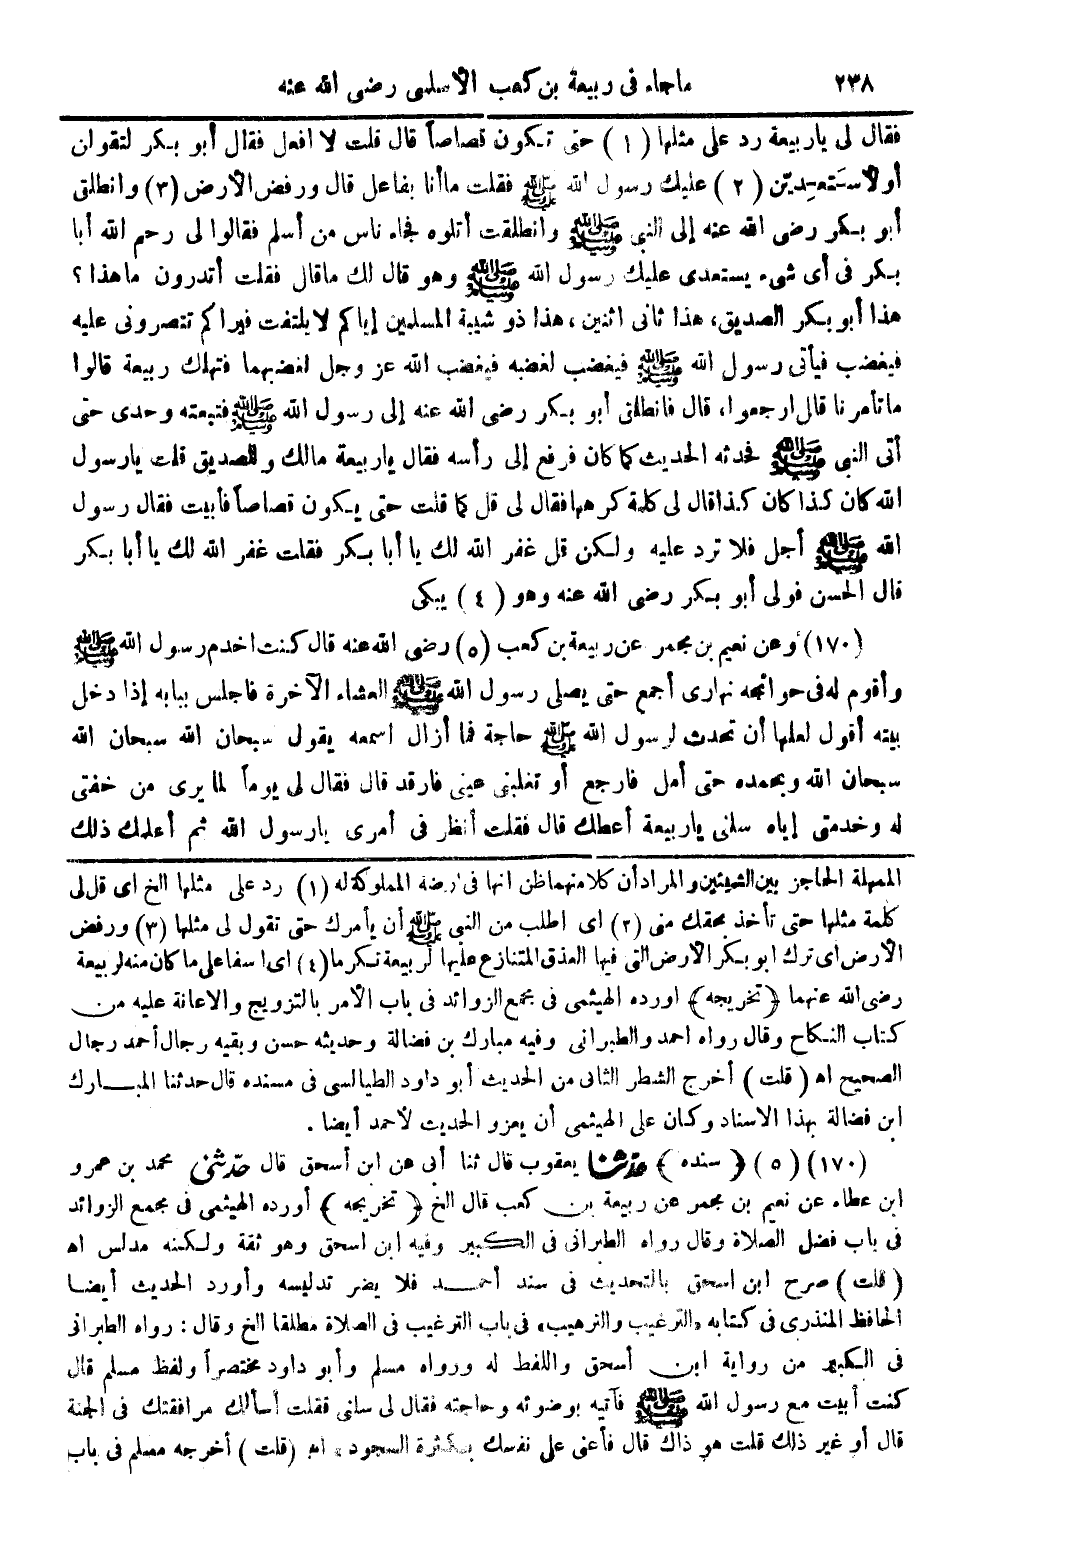 ٢٣٨ ماجاء فى ربيعة بن كعب الأسلمى رضى الله عنه
فقال لى ياربيعة رد على مثلها (١) حتى تكون قصاصاً قال قلت لا افعل فقال أبو بكر لتقولن
أولأستعدين (٢) عليك رسول الله ﷺ فقلت ماأنا بفاعل قال ورفض الأرض (٣) وانطلق
أبو بكر رضى الله عنه إلى النبى ﷺ وانطلقت أتلوه فجاء ناس من أسلم فقالوا لى رحم الله أبا
بكر فى أى شىء يستعدى عليك رسول الله ﷺ وهو قال لك ماقال فقلت أتدرون ماهذا ؟
هذا أبو بكر الصديق، هذا ثانى اثنين ، هذا ذو شيبة المسلمين إياكم لايلتفت فيراكم تنصرونى عليه
فيغضب فيأتى رسول الله ﷺ فيغضب لغضبه فيغضب الله عز وجل لغضبهما فتهلك ربيعة قالوا
ماتأمرنا قال ارجعوا، قال فانطلق أبو بكر رضى الله عنه إلى رسول الله ﷺ فتبعته وحدى حتى
أتى النبى ﷺ فحدثه الحديث كما كان فرفع إلى رأسه فقال ياربيعة مالك وللصديق قلت يارسول
الله كان كذا كان كذا قال لى كلمة كرهها فقال لى قل كما قلت حتى يكون قصاصاً فأبيت فقال رسول
الله ﷺ أجل فلا ترد عليه ولكن قل غفر الله لك يا أبا بكر فقلت غفر الله لك يا أبا بكر
قال الحسن فولى أبو بكر رضى الله عنه وهو (٤) يبكى
(١٧٠) وعن نعيم بن مجمر عن ربيعة بن كعب (٥) رضى الله عنه قال كنت اخدم رسول الله ﷺ
وأقوم له فى حوائجه نهارى أجمع حتى يصلى رسول الله ﷺ العشاء الآخرة فاجلس ببابه إذا دخل
بيته أقول لعلها أن تحدث لرسول الله ﷺ حاجة فما أزال اسمعه يقول سبحان الله سبحان الله
سبحان الله وبحمده حتى أمل فارجع أو تغلبنى عينى فارقد قال فقال لى يوماً لما يرى من خفتى
له وخدمتى إياه سلنى ياربيعة أعطك قال فقلت أنظر فى أمرى يارسول الله ثم أعلمك ذلك
المهملة الحاجز بين الشيئين والمراد أن كلا منهما ظن انها فى ارضه المملوكة له (١) رد على مثلها الخ اى قل لى
كلمة مثلها حتى تأخذ بحقك منى (٢) اى اطلب من النبى ﷺ أن يأمرك حتى تقول لى مثلها (٣) ورفض
الأرض اى ترك ابو بكر الأرض التى فيها العذق المتنازع عليها لربيعة تكرما (٤) اى اسفا على ما كان منه لربيعة
رضى الله عنهما ﴿تخريجه﴾ اورده الهيثمى فى مجمع الزوائد فى باب الأمر بالتزويج والاعانة عليه من
كتاب النكاح وقال رواه احمد والطبرانى وفيه مبارك بن فضالة وحديثه حسن وبقيه رجال أحمد رجال
الصحيح اه (قلت) أخرج الشطر الثانى من الحديث أبو داود الطيالسى فى مسنده قال حدثنا المبارك
ابن فضالة بهذا الاسناد وكان على الهيثمى أن يعزو الحديث لأحمد أيضا .
(١٧٠) (٥) ﴿سنده﴾ حدثنا يعقوب قال ثنا أبى عن ابن أسحق قال حدثنى محمد بن عمرو
ابن عطاء عن نعيم بن مجمر عن ربيعة بن كعب قال الخ ﴿تخريجه﴾ أورده الهيثمى فى مجمع الزوائد
فى باب فضل الصلاة وقال رواه الطبرانى فى الكبير وفيه ابن اسحق وهو ثقة ولكنه مدلس اه
(قلت) صرح ابن اسحق بالتحديث فى سند أحمد فلا يضر تدليسه وأورد الحديث أيضا
الحافظ المنذرى فى كتابه «الترغيب والترهيب» فى باب الترغيب فى الصلاة مطلقا الخ وقال : رواه الطبرانى
فى الكبير من رواية ابن أسحق واللفظ له ورواه مسلم وأبو داود مختصراً ولفظ مسلم قال
كنت أبيت مع رسول الله ﷺ فآتيه بوضوئه وحاجته فقال لى سلنى فقلت أسألك مرافقتك فى الجنة
قال أو غير ذلك قلت هو ذاك قال فأعنى على نفسك بكثرة السجود . اه (قلت) أخرجه مسلم فى باب